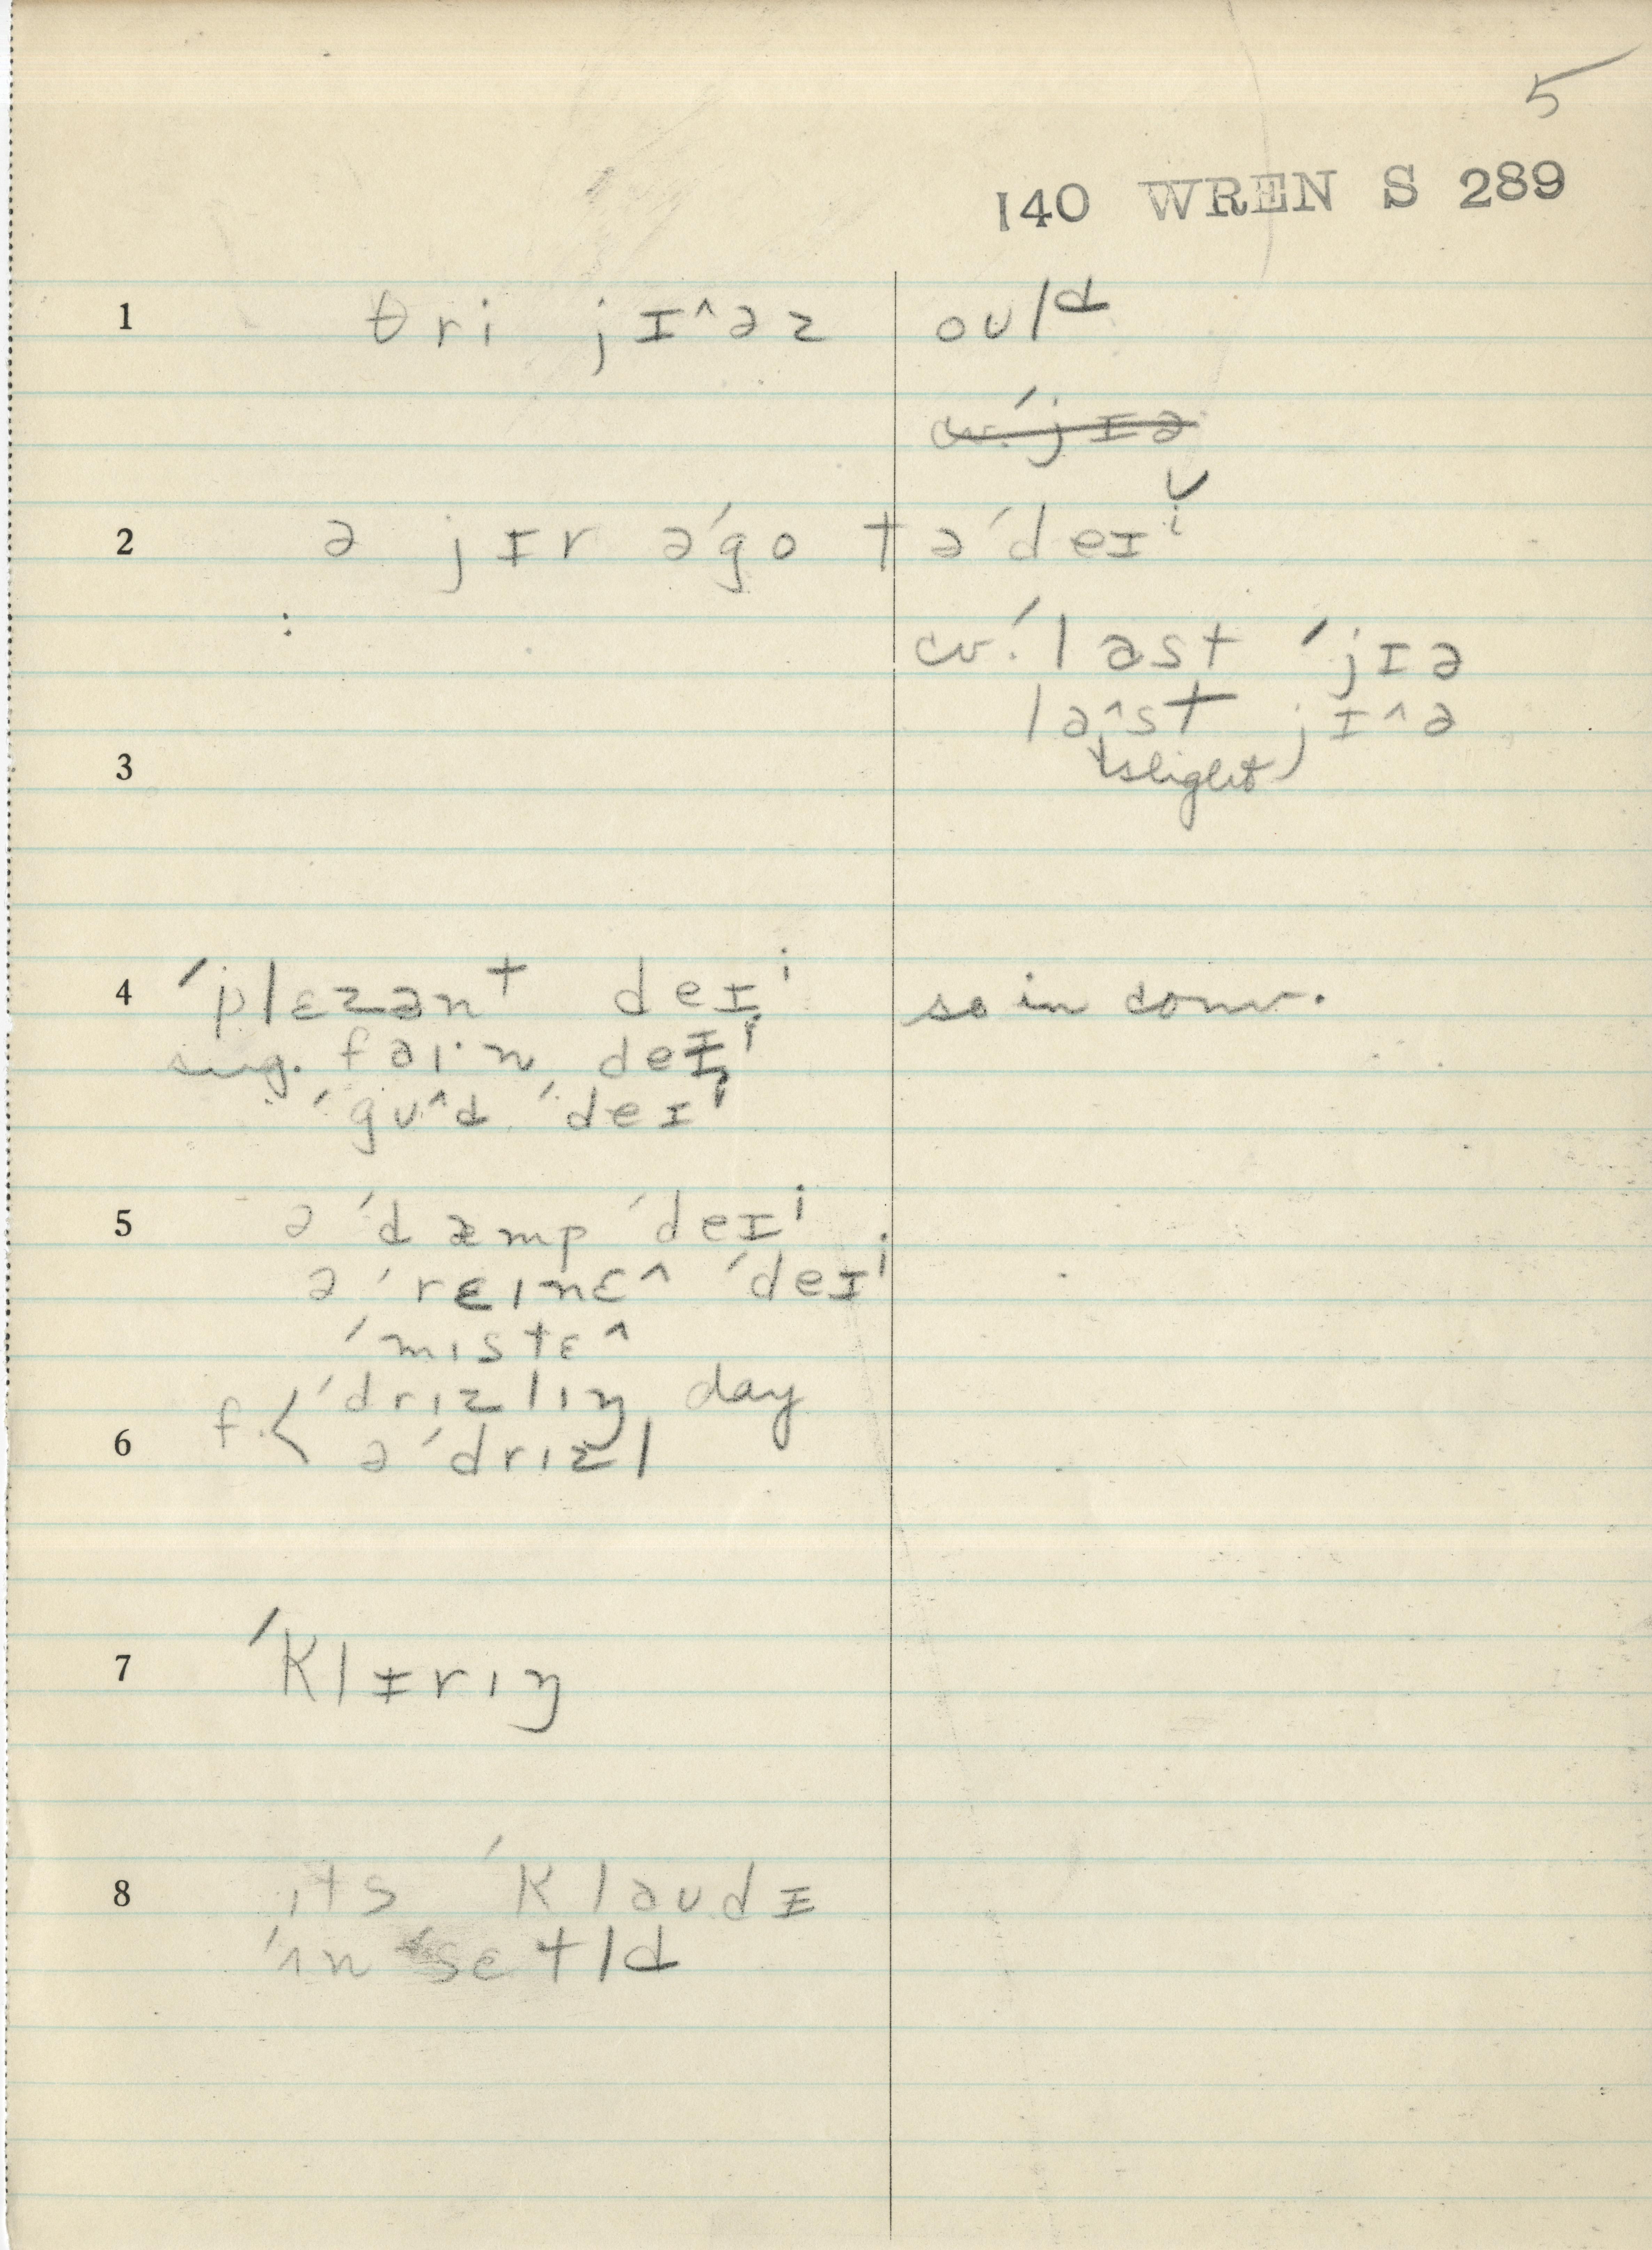 5
140 WREN S 289
1 θri jɪ^əz oʊld
cv. ˈjɪə
2 ə jɪr əˈgo təˈdeɪⁱ
cv. ˈlast ˈjɪə
la^st jɪ^ə
(slight)
3
4 ˈplɛzənt deɪⁱ so in conv.
sug. faɪ·n deɪⁱ
ˈgʊ^d ˈdeɪⁱ
5 ə ˈdæmp ˈdeɪⁱ
ə ˈrɛɪnɛ^ ˈdeɪⁱ
ˈmɪstɛ^
ˈdrɪzlɪŋ day
6 f. < ə ˈdrɪzl
7 ˈklɪrɪŋ
8 ɪts ˈklaʊdɪ
ˈʌnˈsɛtld